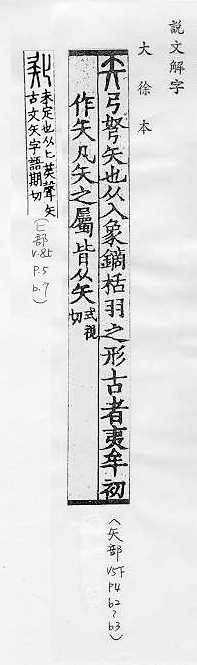 說文解字
大徐本
弓弩矢也从入象鏑栝羽之形古者夷牟初
作矢凡矢之屬皆从矢式視
切
未定也从匕聲矢
古文矢字語期切
(匕部 V.8上 P.5 b.7)
(矢部 V5下 P4 b2 ? b3)